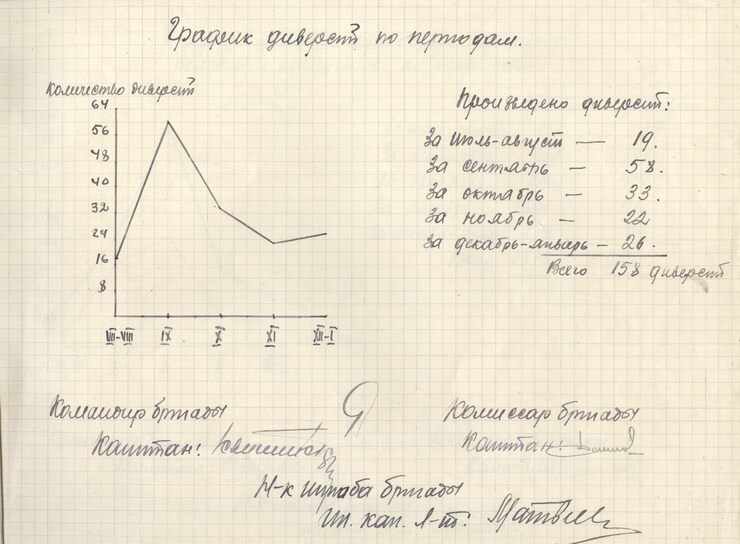 График диверсий по периодам.
Количество диверсий
64
56
48
40
32
24
16
8
VII-VIII IX X XI XII-I
Произведено диверсий:
За июль-август — 19.
За сентябрь — 58.
За октябрь — 33.
За ноябрь — 22
За декабрь-январь — 26.
Всего 158 диверсий
Командир бригады
Капитан:
Комиссар бригады
Капитан:
Н-к штаба бригады
кап. л-т: Матвеев